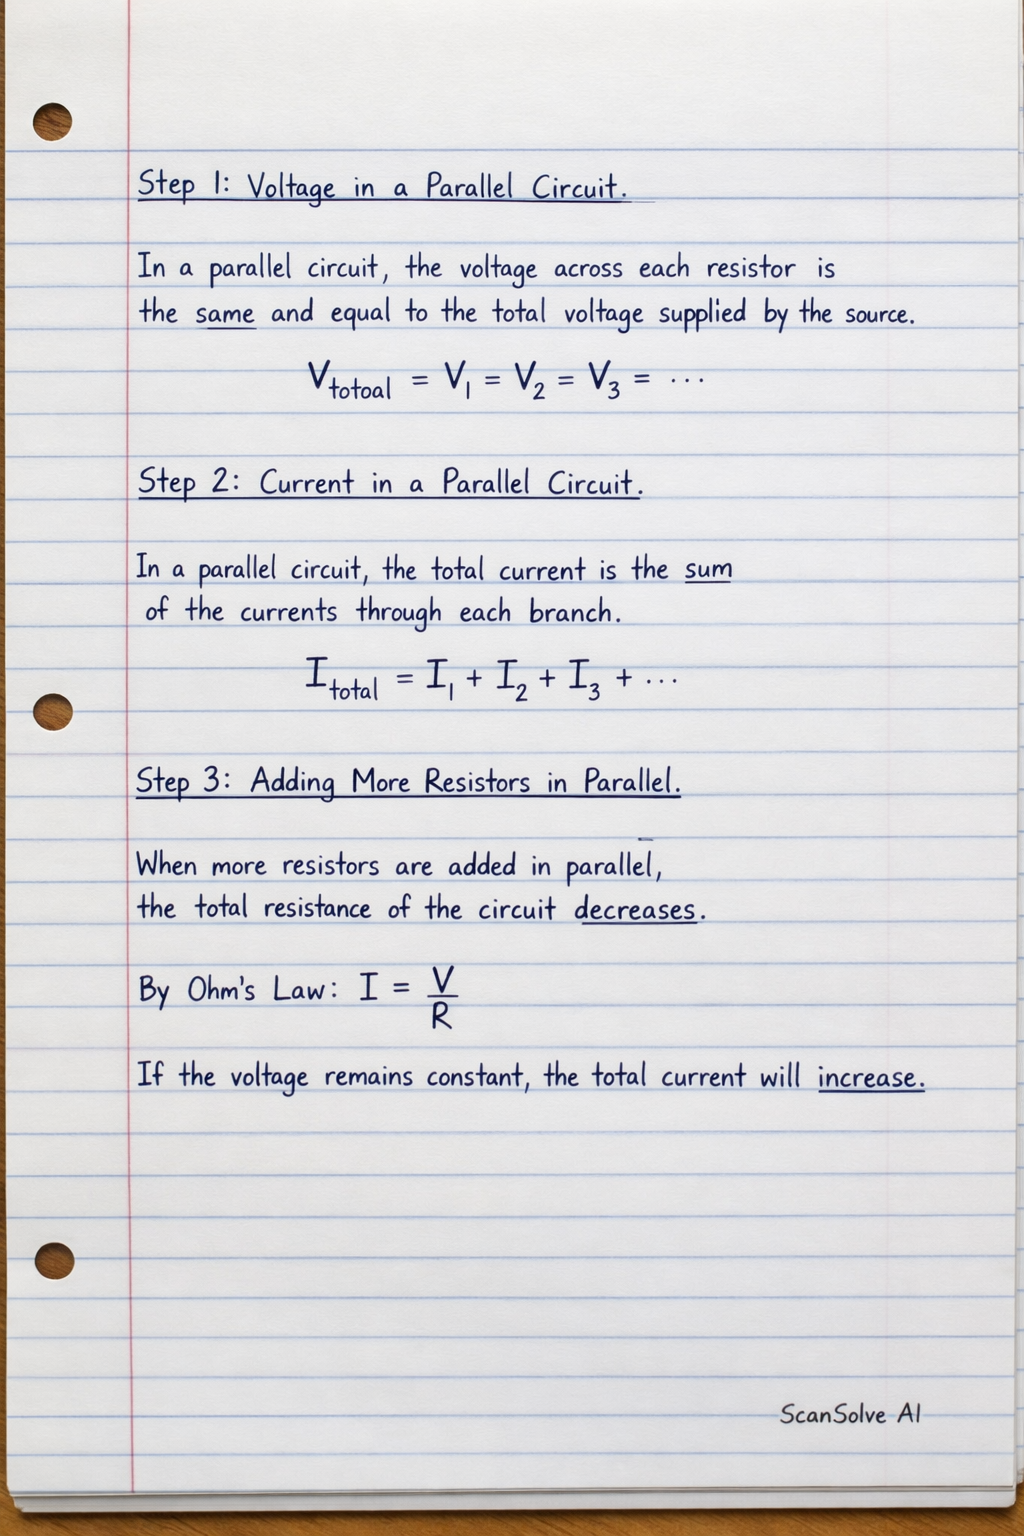 Step 1: Voltage in a Parallel Circuit.
In a parallel circuit, the voltage across each resistor is
the same and equal to the total voltage supplied by the source.
V_totoal = V_1 = V_2 = V_3 = ...
Step 2: Current in a Parallel Circuit.
In a parallel circuit, the total current is the sum
of the currents through each branch.
I_total = I_1 + I_2 + I_3 + ...
Step 3: Adding More Resistors in Parallel.
When more resistors are added in parallel,
the total resistance of the circuit decreases.
By Ohm's Law: I = V/R
If the voltage remains constant, the total current will increase.
ScanSolve AI